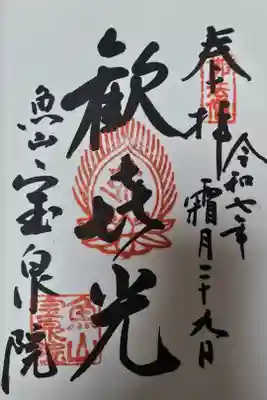 奉拝
令和七年
霜月二十九日
歓喜光
魚山宝泉院
魚山